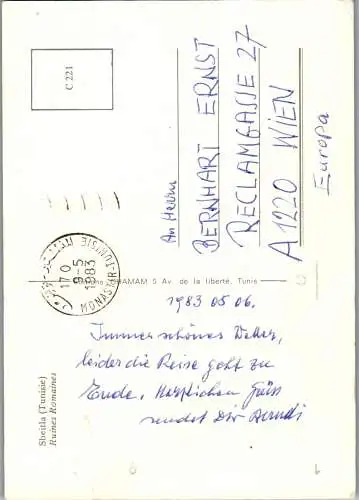 C 221
An Herrn
BERNHART ERNST
RECLAMGASSE 27
A 1220 WIEN
Europa
17 0
9-5
1983
MONASTIR-TUNISIE
HAMAM 5 Av. de la liberté, Tunis
1983 05 06.
Immer schönes Wetter,
leider die Reise geht zu
Ende. Herzlichen Gruss
sendet Dir
Sbeitla (Tunisie)
Ruines Romaines